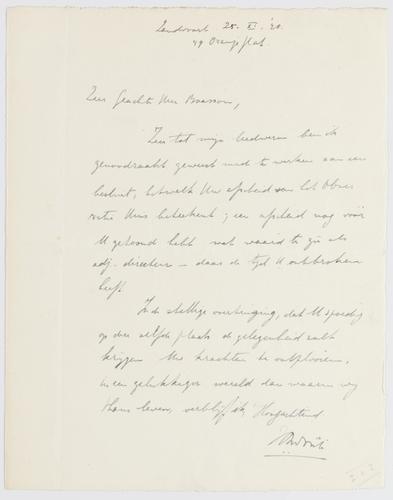 Zandvoort 25. XI. '40.
79 Oranjeflat.
Zeer Geachte Heer Baasson,
Zeer tot mijn leedwezen ben ik
genoodzaakt geweest mede te werken aan een
besluit, hetwelk Uw afscheid van het Obser
vatie Huis beteekent; een afscheid nog vóór
U getoond hebt wat waard te zijn als
adj. directeur — daar de tijd U ontbroken
heeft.
In de stellige overtuiging, dat U spoedig
op dezelfde plaats de gelegenheid zult
krijgen Uw krachten te ontplooien,
in een gelukkiger wereld dan waarin wij
thans leven, verblijf ik, Hoogachtend